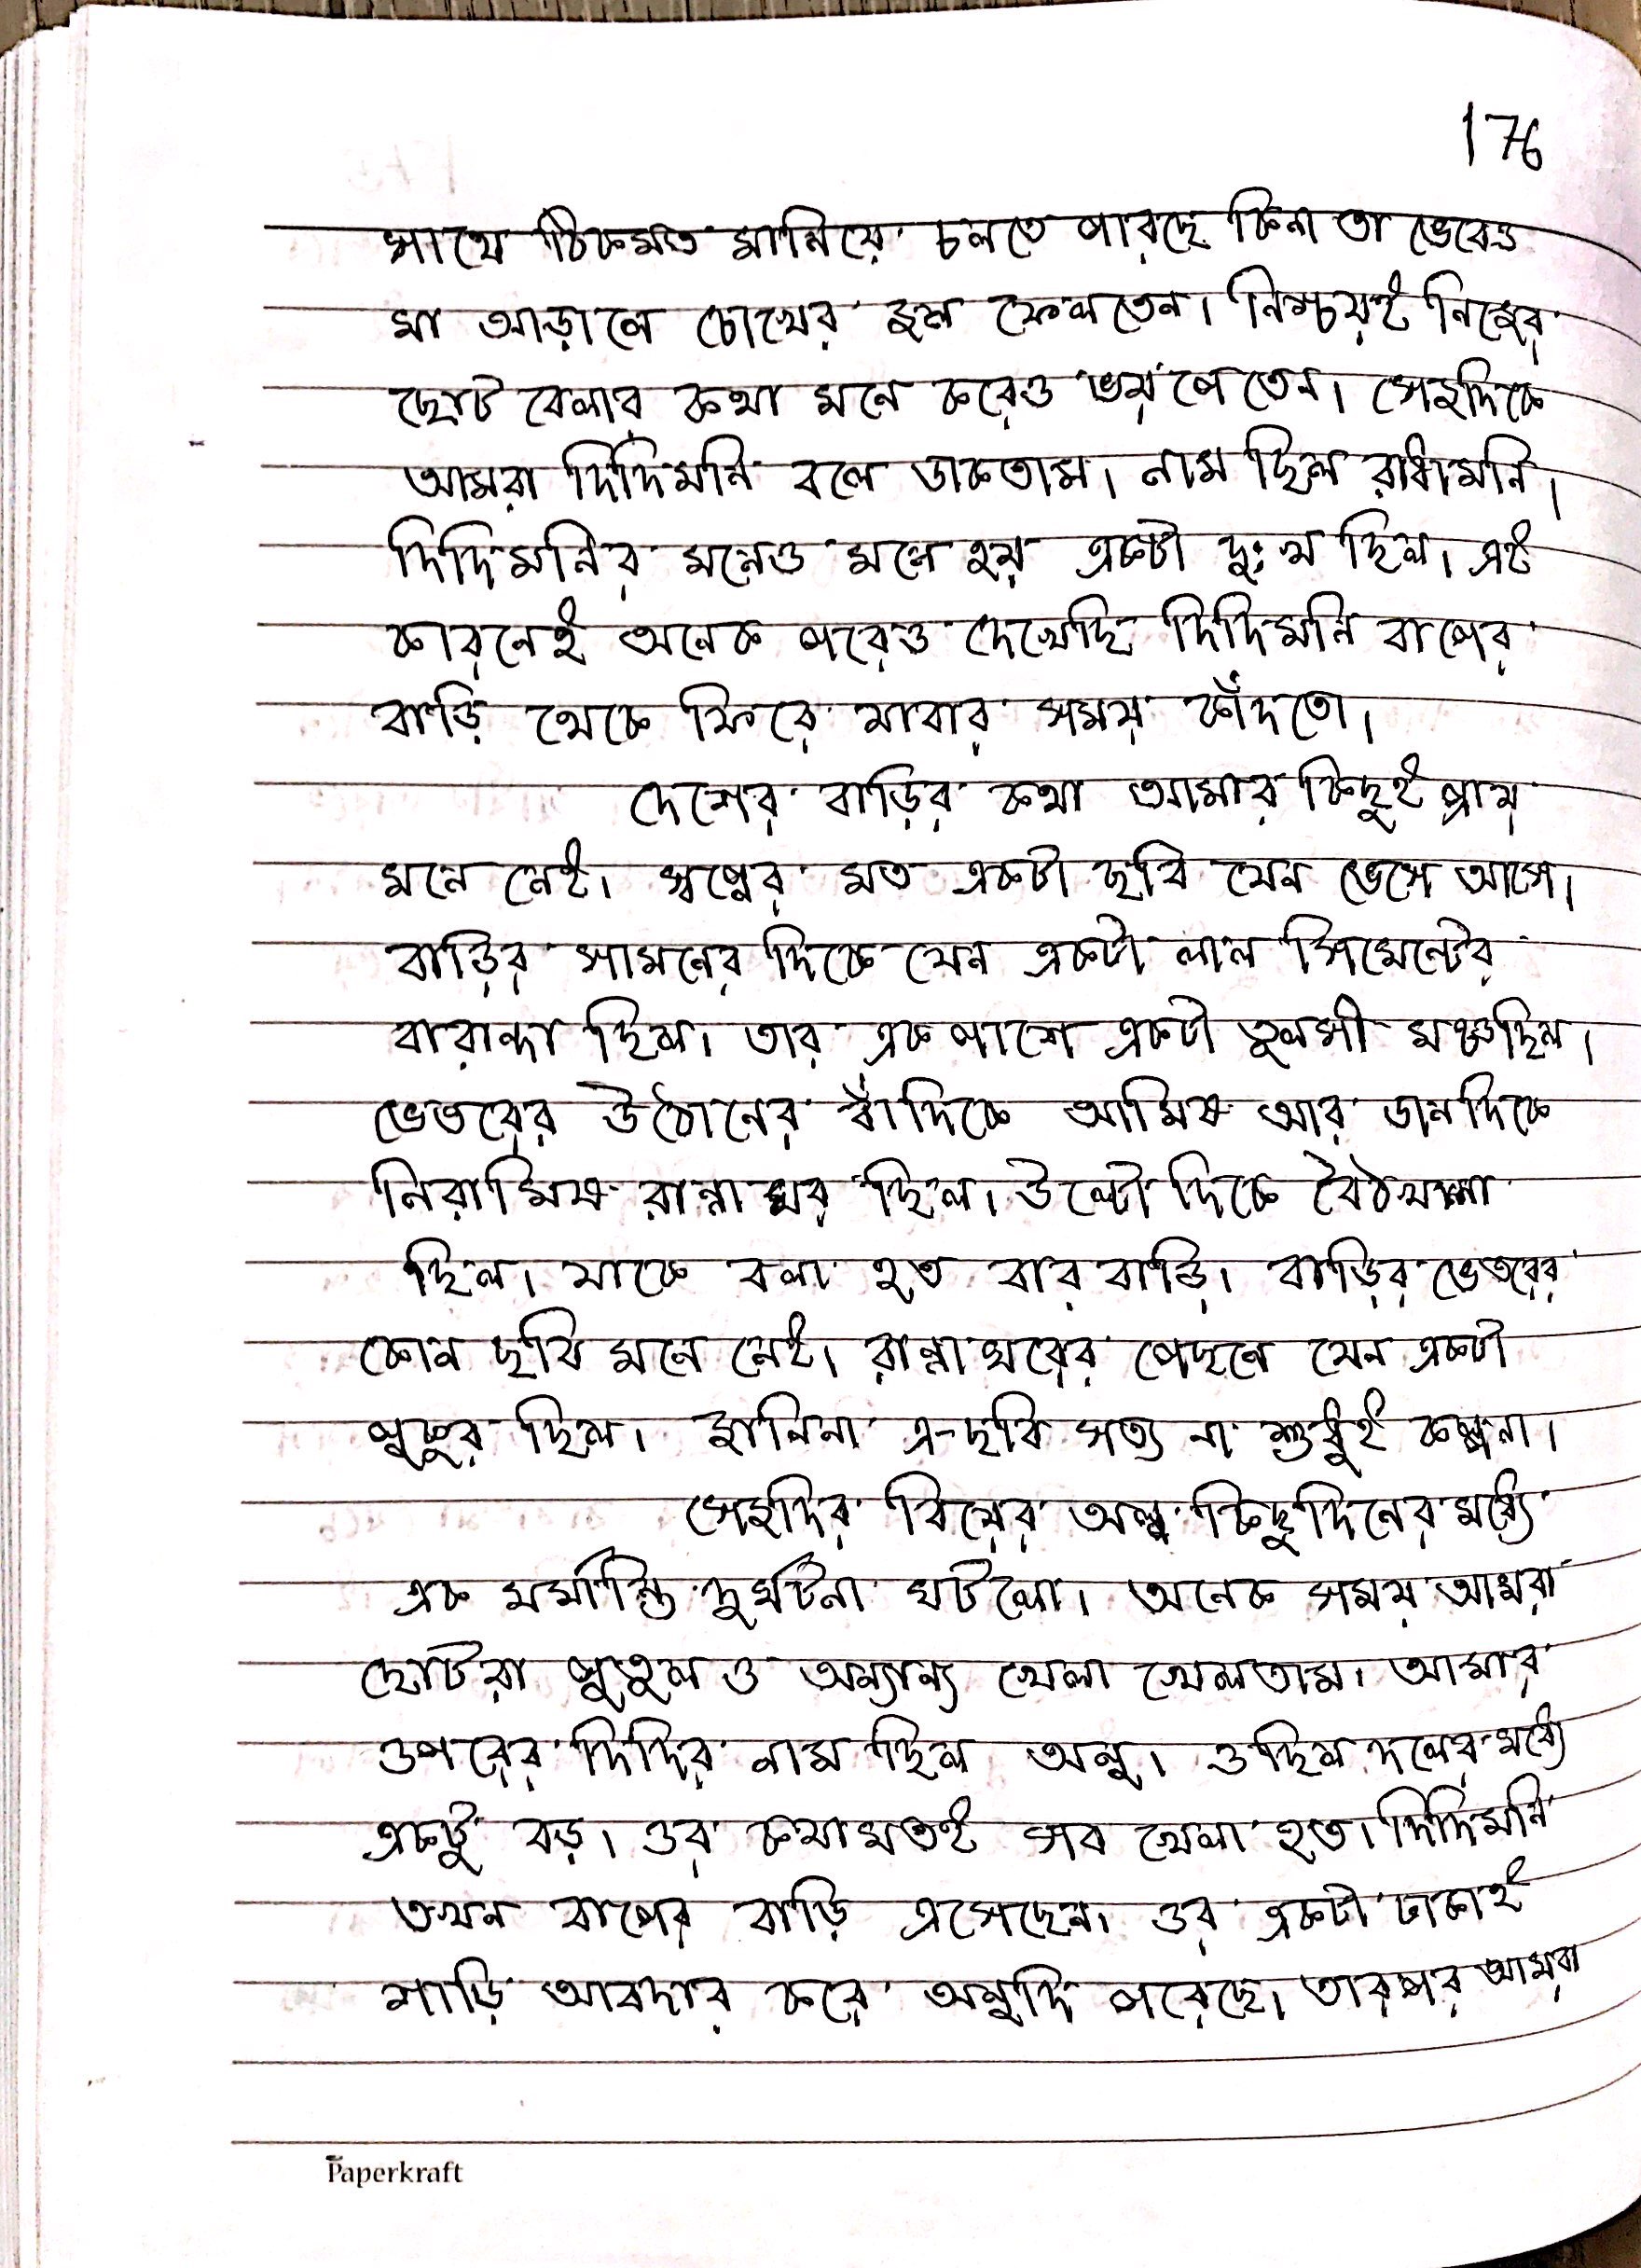 176
সাথে ঠিকমত মানিয়ে চলতে পারছে কিনা তা ভেবেও
মা আড়ালে চোখের জল ফেলতেন। নিশ্চয়ই নিজের
ছোট বেলার কথা মনে করেও ভয় পেতেন। সেইদিকে
আমরা দিদিমনি বলে ডাকতাম। নাম ছিল রাধামনি।
দিদিমনির মনেও মনে হয় একটা দুঃখ ছিল। এই
কারনেই অনেক পরেও দেখেছি দিদিমনি বাপের
বাড়ি থেকে ফিরে যাবার সময় কাঁদতো।
দেশের বাড়ির কথা আমার কিছুই প্রায়
মনে নেই। স্বপ্নের মত একটা ছবি যেন ভেসে আসে।
বাড়ির সামনের দিকে যেন একটা লাল সিমেন্টের
বারান্দা ছিল। তার এক পাশে একটা তুলসী মঞ্চ ছিল।
ভেতরের উঠোনের বাঁদিকে আমিষ আর ডানদিকে
নিরামিষ রান্না ঘর ছিল। উল্টো দিকে বৈঠকখানা
ছিল। যাকে বলা হত বার বাড়ি। বাড়ির ভেতরের
কোন ছবি মনে নেই। রান্না ঘরের পেছনে যেন একটা
পুকুর ছিল। জানিনা এ-ছবি সত্য না শুধুই কল্পনা।
সেইদির বিয়ের অল্প কিছুদিনের মধ্যে
এক মর্মান্তি দুর্ঘটনা ঘটলো। অনেক সময় আমরা
ছোটরা পুতুল ও অন্যান্য খেলা খেলতাম। আমার
ওপরের দিদির নাম ছিল অনু। ও ছিল দলের মধ্যে
একটু বড়। ওর কথামতই সব খেলা হত। দিদিমনি
তখন বাপের বাড়ি এসেছেন। ওর একটা ঢাকাই
শাড়ি আবদার করে অনুদি পরেছে। তারপর আমরা
Paperkraft